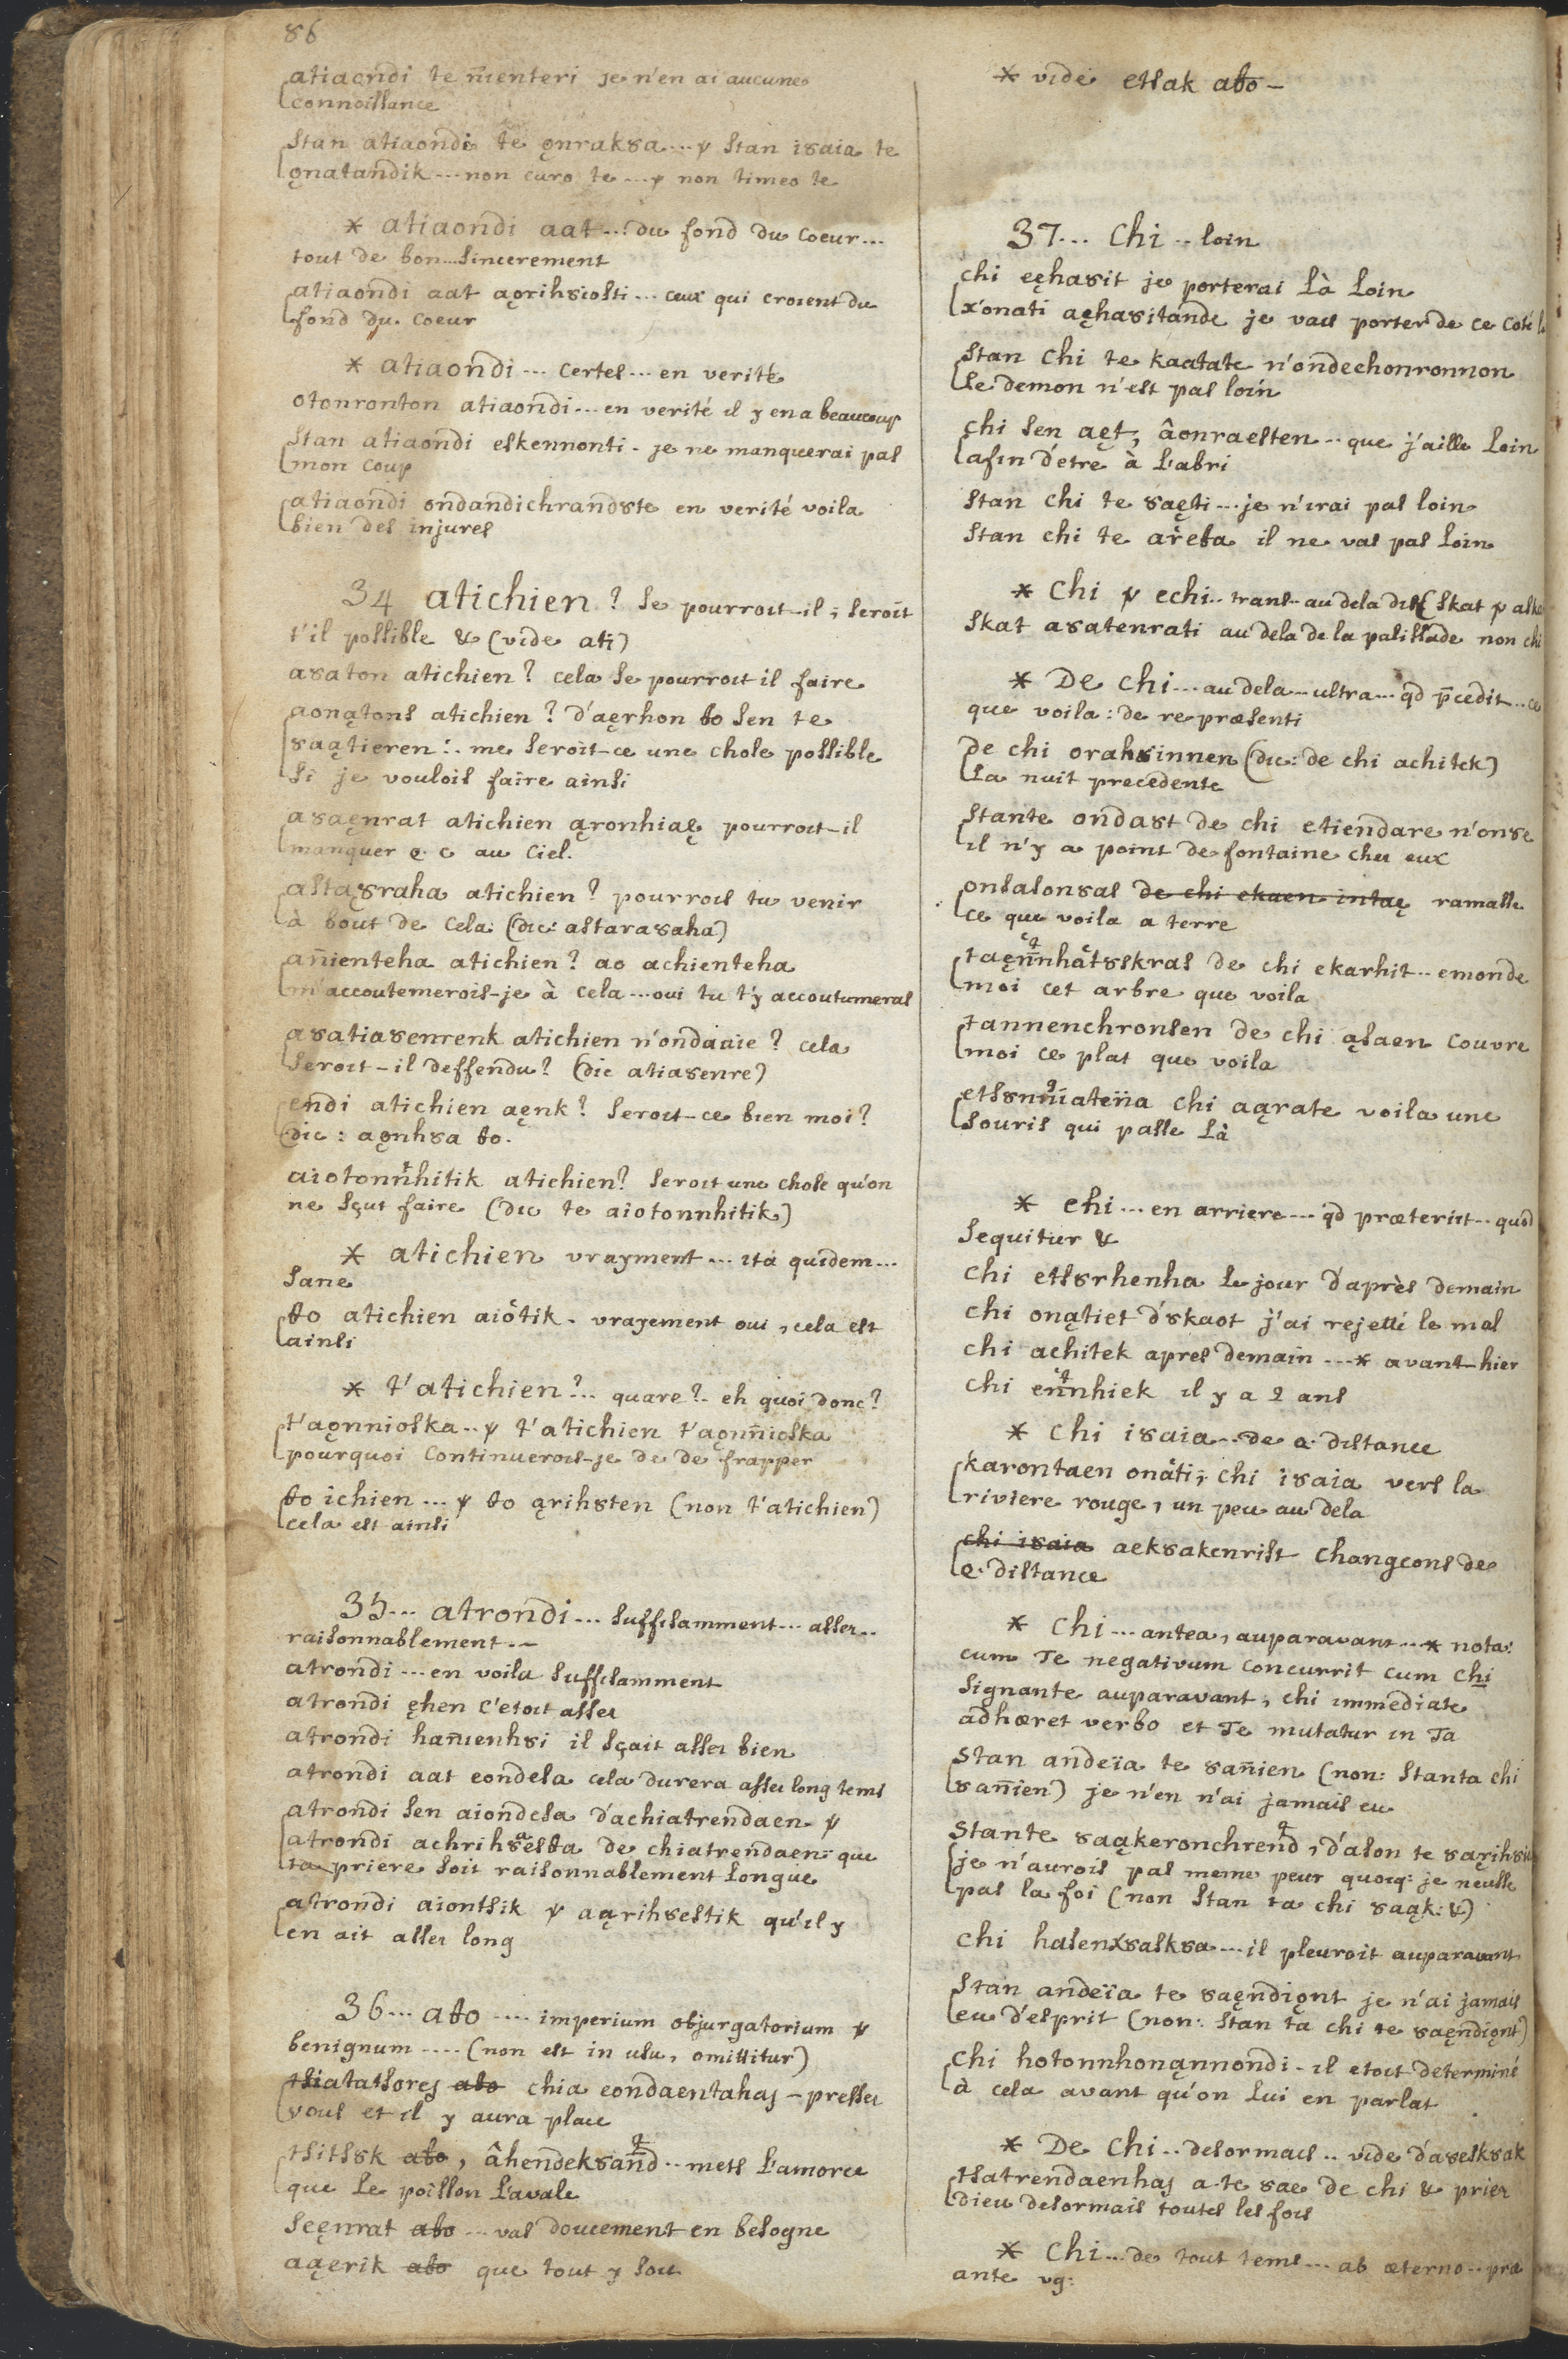 86
atiaondi te n̄ienteri je n'en ai aucune
connoissance
stan atiaondi te ǫnraksa...ψ stan i8aia te
ǫnatandik...non curo te...ψ non timeo te
* atiaondi aat...du fond du coeur...
tout de bon...sincerement
atiaondi aat aǫrih8iosti...ceux qui croient du
fond du coeur
* atiaondi...certes...en verité
otonronton atiaondi...en verité il y en a beaucoup
stan atiaondi eskennonti. je ne manquerai pas
mon coup
atiaondi ondandichrand8te en verité voila
bien des injures
34 atichien? se pourroit-il, seroit
t'il possible & (vide ati)
a8aton atichien? cela se pourroit il faire
aonątons atichien? d'aęrhon ɵo sen te
8aątieren:. me seroit-ce une chose possible
si je voulois faire ainsi
a8aęnrat atichien ąronhiaę pourroit-il
manquer q. c au Ciel.
astą8raha atichien? pourrois tu venir
à bout de cela: (dic: astara8aha)
an̄ienteha atichien? ao achienteha
m'accoutemerois-je à cela...oui tu t'y accoutumeras
a8atia8enrenk atichien n'ondaaie? cela
seroit-il deffendu? (dic atia8enre)
endi atichien aęnk? seroit-ce bien moi?
(dic: aǫnh8a ɵo.
aiotonn̔hitik atichien? seroit une chose qu'on
ne sçut faire (dic te aiotonnhitik)
* atichien vrayment...ita quidem...
sane
ɵo atichien aiötik. vrayement oui, cela est
ainsi
* t'atichien?.. quare?.. eh quoi donc?
t'aǫnnioska..ψ t'atichien t'aǫnn̄ioska
pourquoi continuerois-je de de frapper
ɵo ichien...ψ ɵo ąrih8ten (non t'atichien)
cela est ainsi
35...atrondi...suffisamment...assez..
raisonnablement.~
atrondi...en voila suffisamment
atrondi ęhen c'etoit assez
atrondi han̄ienh8i il sçait assez bien
atrondi aat eondesa cela durera assez long tems
atrondi sen aiondesa d'achiatrendaen ψ
atrondi achrih8esɵa de chiatrendaen: que
ta priere soit raisonnablement longue
atrondi aiontsik ψ aąrih8estik qu'il y
en ait assez long
36...aɵo....imperium objurgatorium ψ
benignum....(non est in usu, omittitur)
tsiatatsores aɵo chia eondaentahas - pressez
vous et il y aura place
tsits8k aɵo, âhendek8an̄d..mets l'amorce
que le poisson l'avale
seęnrat aɵo...vas doucement en besogne
aąerik aɵo que tout y soit
* vide etsak aɵo -
37...chi..loin
chi eęha8it je porterai là loin
x'onati aęha8itande je vais porter de ce coté l
stan chi te kaatate n'ondechonronnon
le demon n'est pas loin
chi sen aęt, âonraesten..que j'aille loin
afin d'etre à l'abri
stan chi te 8aęti...je n'irai pas loin
stan chi te areɵa il ne vas pas loin
* chi ψ echi..trans-au dela dis(skat ψ
skat a8atenrati au dela de la palissade non chi
* De chi...au dela...ultra...qd p̄cedit...ce
que voila: de re præsenti
de chi orah8innen (dic: de chi achitek)
la nuit precedente
stante onda8t de chi etiendare n'on8e
il n'y a point de fontaine chez eux
onsason8as de chi ekaen intaę ramasse
ce que voila a terre
taęn̄nhät8kras de chi ekarhit..emonde
moi cet arbre que voila
tannenchronsen de chi ąsaen couvre
moi ce plat que voila
ets8nn̄iateïia chi aąrate voila une
souris qui passe là
* chi...en arriere...qd præteriit..quod
sequitur &
chi ets8rhenha le jour d'après demain
chi onątiet d'8kaot j'ai rejetté le mal
chi achitek apres demain...* avant-hier
chi en̄nhiek il y a 2 ans
* chi i8aia..de q. distance
karontaen onäti, chi i8aia vers la
riviere rouge, un peu au dela
chi i8aia aek8akenrist changeons de
q. distance
* chi...antea, auparavant...* nota:
cum Te negativum concurrit cum chi
signante auparavant, chi immediate
adhæret verbo et Te mutatur in Ta
stan andeïa te 8an̄ien (non: stanta chi
8an̄ien) je n'en n'ai jamais eu
stante 8aąkeronchrend, d'ason te 8aąrih8i
je n'aurois pas meme peur quoiq: je neusse
pas la foi (non stan ta chi 8aąk: &)
chi hasenx8ask8a...il pleuroit auparavant
stan andeïa te 8aęndiǫnt je n'ai jamais
eu d'esprit (non: stan ta chi te 8aęndiǫnt)
chi hotonnhonąnnondi - il etoit determiné
à cela avant qu'on lui en parlat
* De chi..desormais..vide d'a8esk8ak
tsatrendaenhas a.te 8ae de chi & prier
dieu desormais toutes les fois
* chi...de tout tems...ab æterno..præ
ante vg: